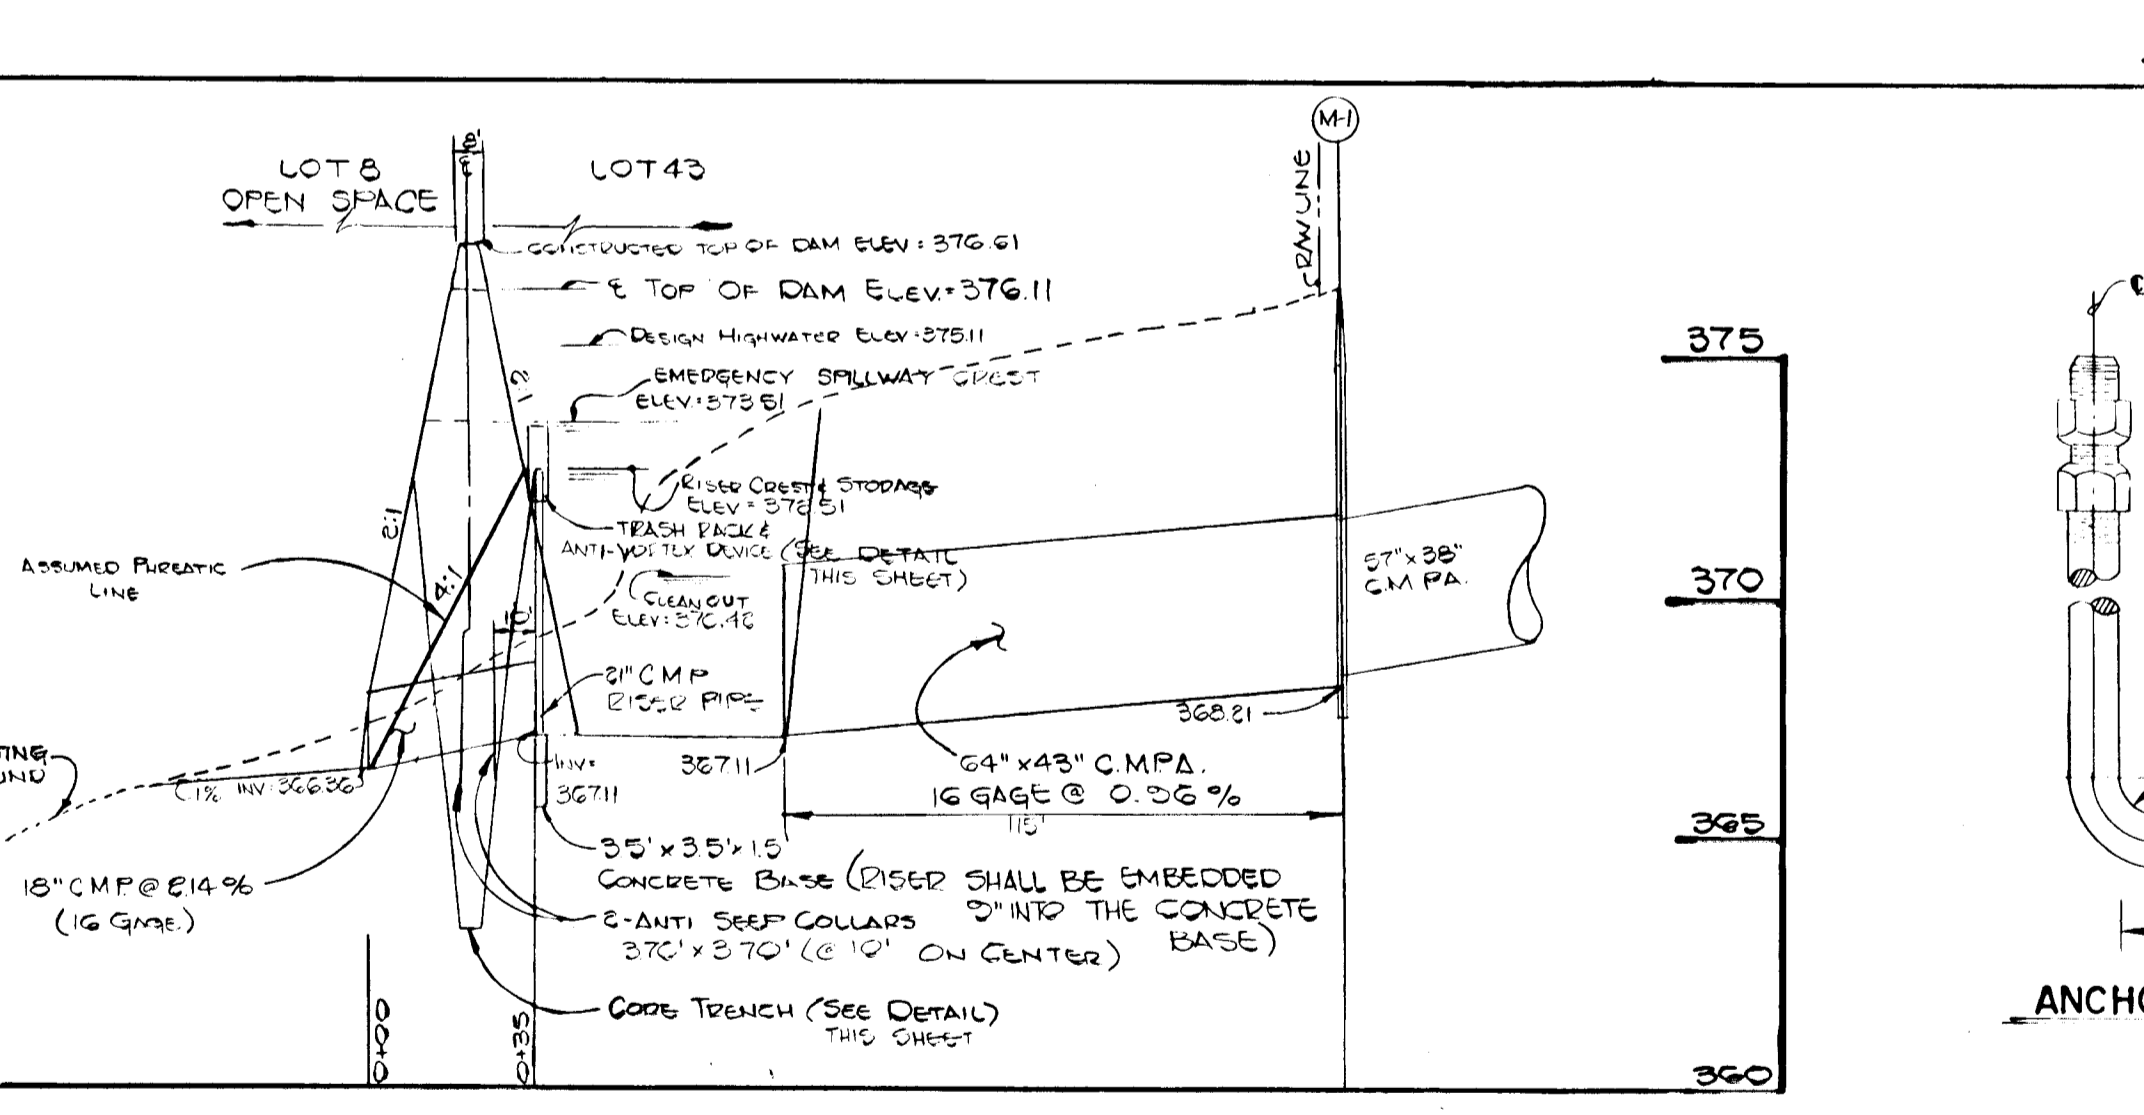 M-1
CRAWLINE
8'
LOT 8
OPEN SPACE
LOT 43
CONSTRUCTED TOP OF DAM ELEV: 376.61
℄ TOP OF DAM ELEV.=376.11
DESIGN HIGHWATER ELEV:375.11
EMERGENCY SPILLWAY CREST
ELEV:373.51
2:1
RISER CREST & STORAGE
TRASH RACK &
ANTI-VORTEX DEVICE (SEE DETAIL
THIS SHEET)
CLEAN OUT
2:1
4:1
ASSUMED PHREATIC
LINE
10'
21" CMP
RISER PIPE
57"x38"
C.M.P.A.
375
370
365
360
368.21
367.11
64"x43" C.M.P.A.
16 GAGE @ 0.96%
115'
INV=
367.11
.1% INV: 366.36
TING
UND
18" C.M.P. @ 2.14%
(16 GAGE)
3.5' x 3.5' x 1.5'
CONCRETE BASE (RISER SHALL BE EMBEDDED
9" INTO THE CONCRETE
BASE)
2-ANTI SEEP COLLARS
3.70' x 3.70' (@ 10' ON CENTER)
CORE TRENCH (SEE DETAIL)
THIS SHEET
0+00
0+35
ANCHO